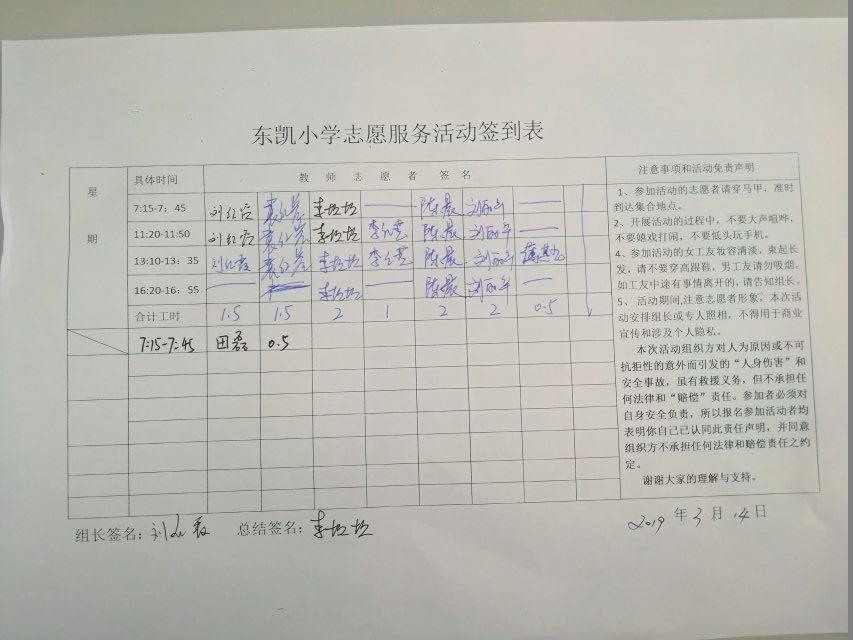 东凯小学志愿服务活动签到表
星期
具体时间
教师志愿者签名
7:15-7:45 刘红霞 李坦坦 —— 陈晨 刘丽平 ——
11:20-11:50 刘红霞 李坦坦 陈晨 刘丽平
13:10-13:35 刘红霞 李坦坦 陈晨 刘丽平
16:20-16:55 —— 李坦坦 —— 陈晨 刘丽平 ——
合计工时 1.5 1.5 2 1 2 2 0.5
7:15-7:45 田磊 0.5
注意事项和活动免责声明
1、参加活动的志愿者请穿马甲，准时
到达集合地点。
2、开展活动的过程中，不要大声喧哗，
不要嬉戏打闹，不要低头玩手机。
4、参加活动的女工友妆容清淡，束起长
发，请不要穿高跟鞋，男工友请勿吸烟。
如工友中途有事情离开的，请告知组长。
5、活动期间,注意志愿者形象。本次活
动安排组长或专人照相，不得用于商业
宣传和涉及个人隐私。
本次活动组织方对人为原因或不可
抗拒性的意外而引发的“人身伤害”和
安全事故，虽有救援义务，但不承担任
何法律和“赔偿”责任。参加者必须对
自身安全负责，所以报名参加活动者均
表明你自己已认同此责任声明，并同意
组织方不承担任何法律和赔偿责任之约
定。
谢谢大家的理解与支持。
组长签名：刘红霞 总结签名：李坦坦
2019年3月14日